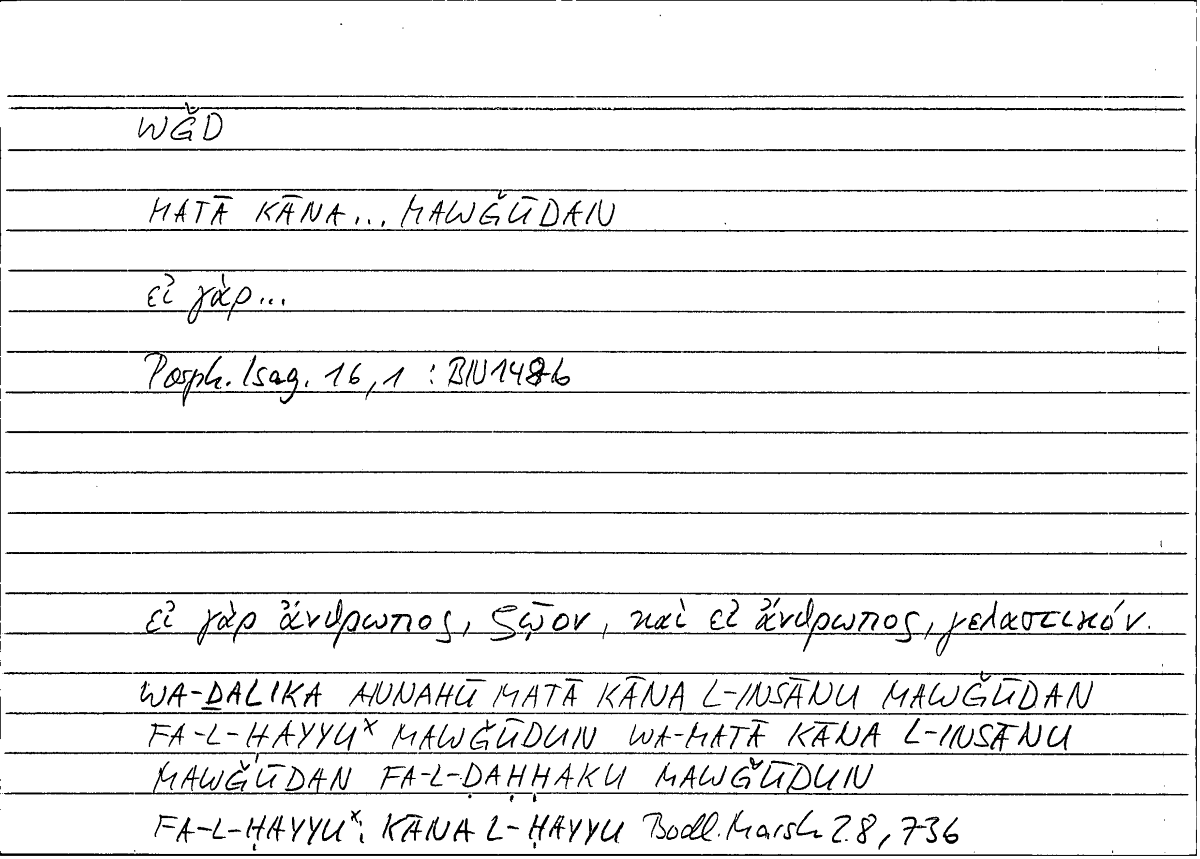 WĞD
MATĀ KĀNA... MAWĞŪDAN
εἰ γὰρ...
Porph. Isag. 16,1 : BN148b
εἰ γὰρ ἄνθρωπος, ζῷον, καὶ εἰ ἄνθρωπος, γελαστικόν.
WA-ḎALIKA ANNAHŪ MATĀ KĀNA L-INSĀNU MAWĞŪDAN
FA-L-ḤAYYUˣ MAWĞŪDUN WA-MATĀ KĀNA L-INSĀNU
MAWĞŪDAN FA-L-ḌAḤḤAKU MAWĞŪDUN
FA-L-ḤAYYUˣ: KĀNA L-ḤAYYU Bodl. Marsh 28, 736